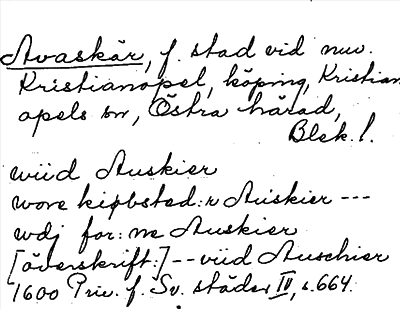 Avaskär, f. stad vid nuv.
Kristianopel, köping, Kristian
opels sn, Östra härad,
Blek. l.
wiid Auskier
wore kiøbsted:r Auskier ---
wdj for:ne Auskier
[överskrift:] -- viid Auschier
1600 Priv. f. Sv. städer IV, s. 664.